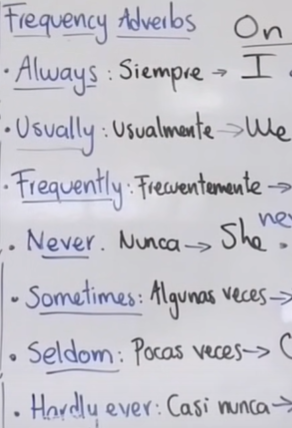 Frequency Adverbs On
· Always : Siempre → I
· Usually : Usualmente → We
· Frequently : Frecuentemente →
· Never . Nunca → She ne
· Sometimes : Algunas veces →
· Seldom : Pocas veces →
· Hardly ever : Casi nunca →